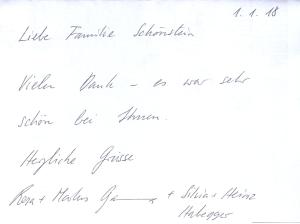 1.1.18
Liebe Familie Schönstein
Vielen Dank – es war sehr
schön bei Ihnen.
Herzliche Grüsse
+ Silvia + Heinz
Habegger